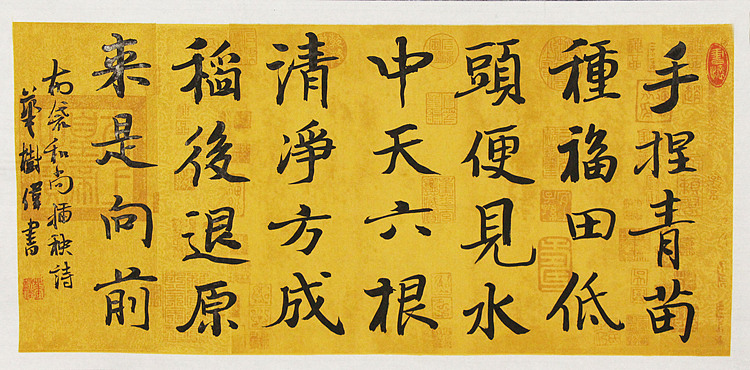 手捏青苗
種福田低
頭便見水
中天六根
清淨方成
稻後退原
来是向前
布袋和尚插秧詩
樹偉書